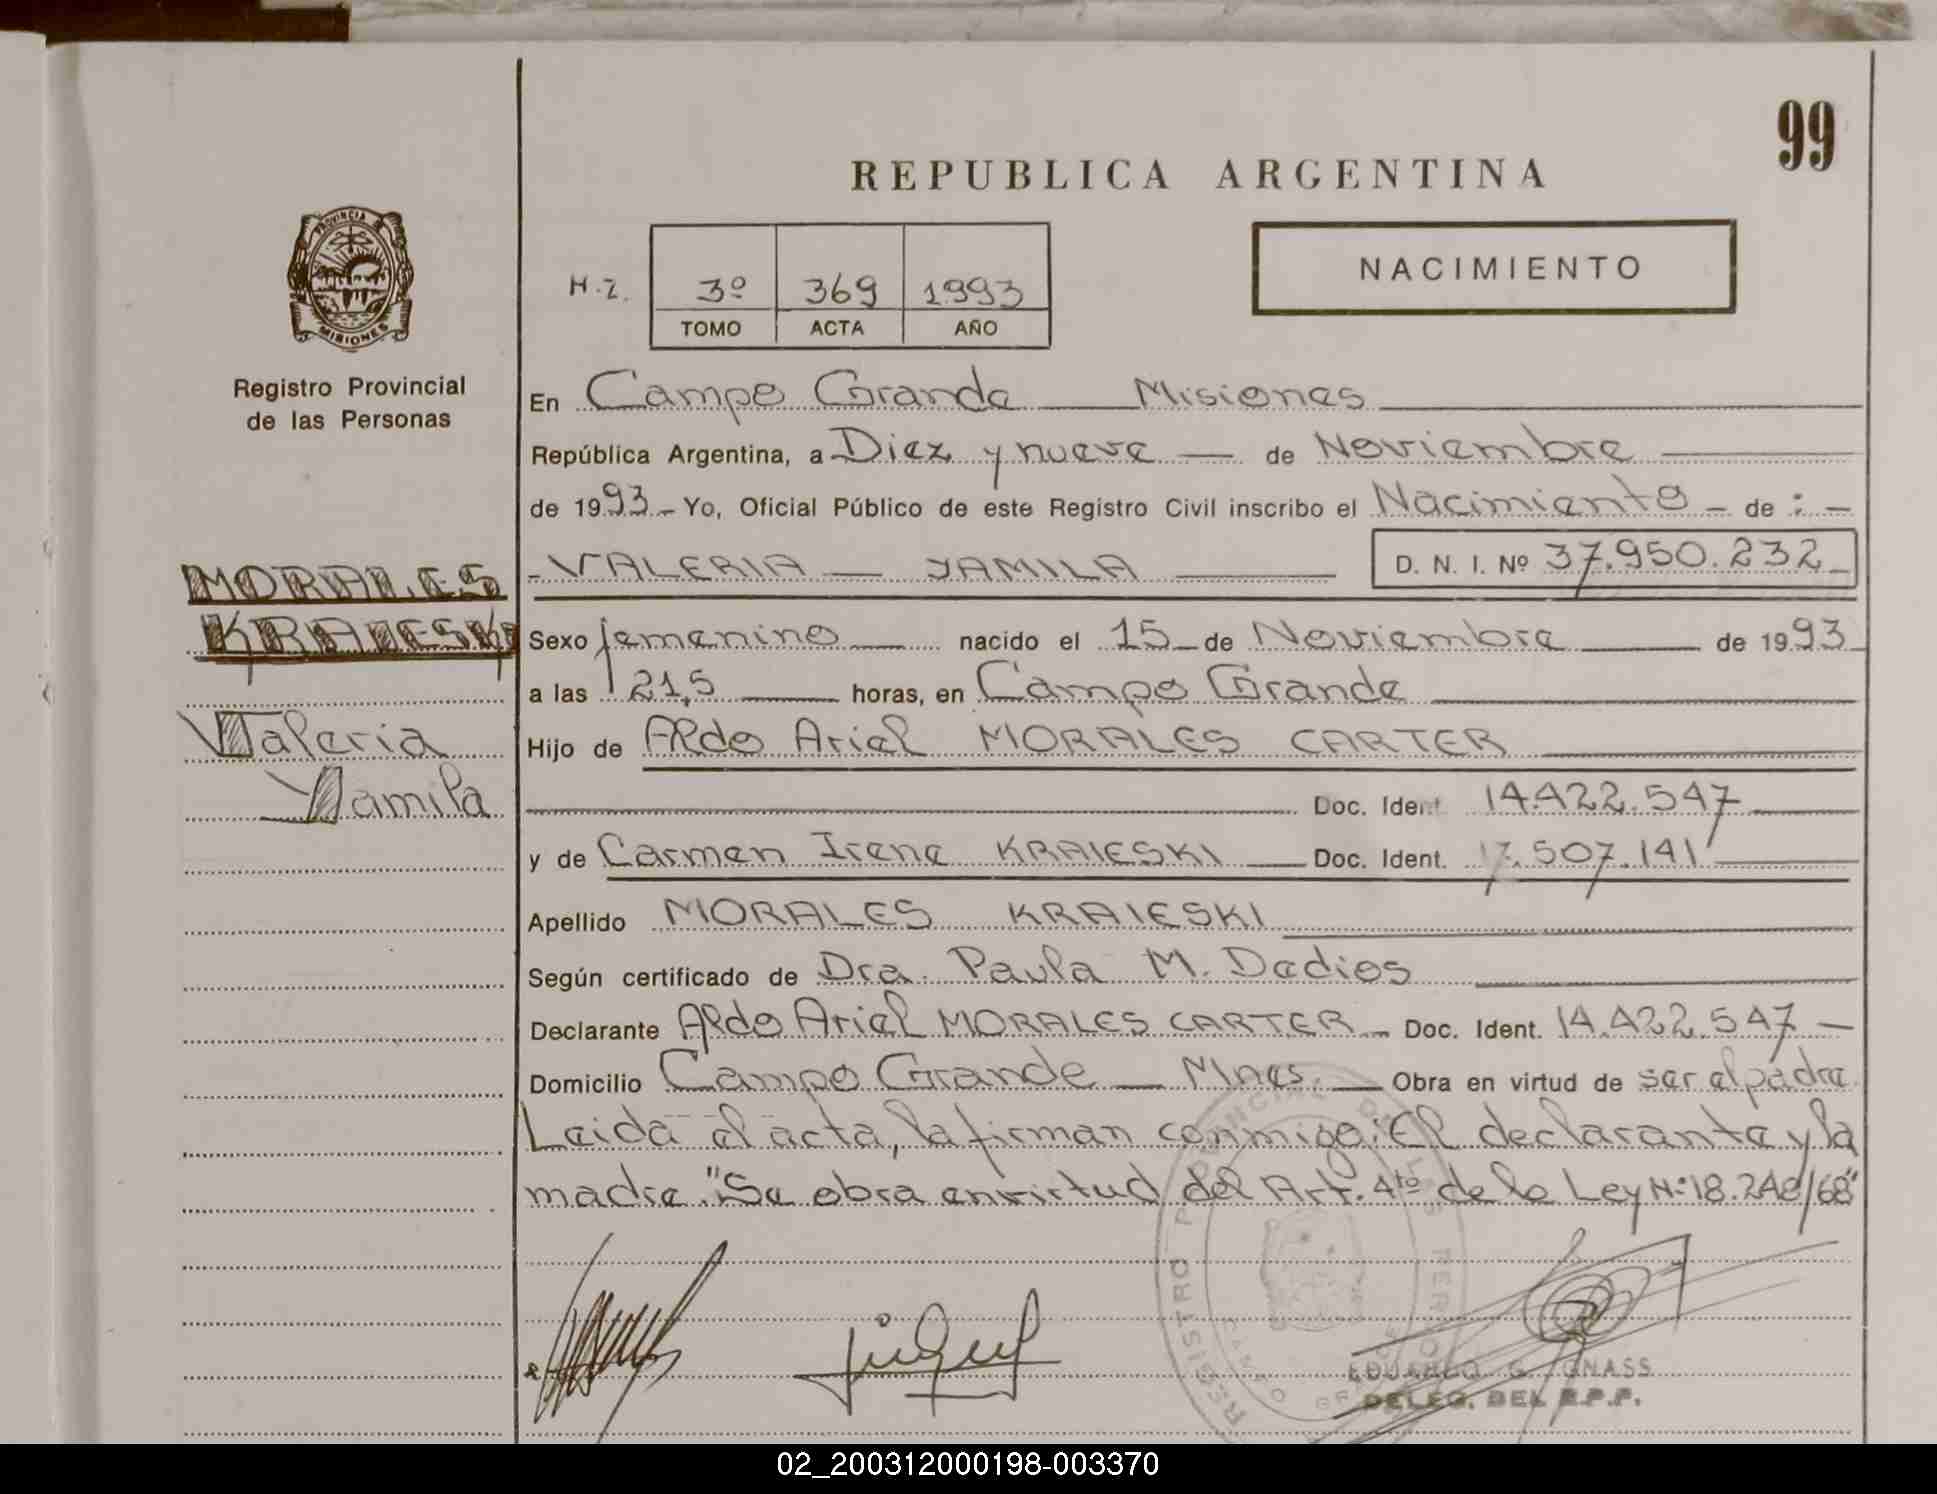 99
REPUBLICA ARGENTINA
NACIMIENTO
H.Z. 3º 369 1993
TOMO ACTA AÑO
PROVINCIA
MISIONES
Registro Provincial
de las Personas
En Campo Grande Misiones
República Argentina, a Diez y nueve — de Noviembre
de 1993 - Yo, Oficial Público de este Registro Civil inscribo el Nacimiento - de : -
- VALERIA — YAMILA — D. N. I. Nº 37.950.232 -
MORALES
KRAIESKI
Valeria
Yamila
Sexo femenino nacido el 15 - de Noviembre de 1993
a las 21,5 horas, en Campo Grande
Hijo de Aldo Ariel MORALES CARTER
Doc. Ident. 14.422.547
y de Carmen Irene KRAIESKI — Doc. Ident. 17.507.141
Apellido MORALES KRAIESKI
Según certificado de Dra. Paula M. Dedios
Declarante Aldo Ariel MORALES CARTER - Doc. Ident. 14.422.547 -
Domicilio Campo Grande — Mnes. — Obra en virtud de ser el padre
Leida el acta, la firman conmigo: El declarante y la
madre. "Se obra en virtud del Art. 4to de la Ley Nº 18.248/68"
REGISTRO PROVINCIAL DE LAS PERSONAS
CAMPO GRANDE
EDUARDO G. GNASS
DELEG. DEL R.P.P.
02_200312000198-003370